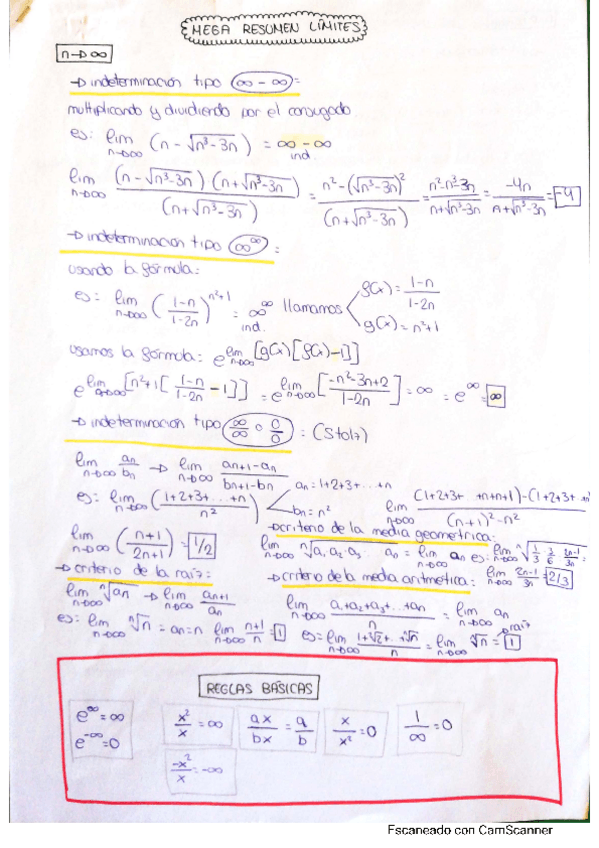 MEGA RESUMEN LÍMITES
n→∞
→ indeterminación tipo ∞-∞ =
multiplicando y dividiendo por el conjugado
ej: lim n→∞ (n - √n³-3n) = ∞ - ∞ ind.
lim n→∞ (n-√n³-3n)(n+√n³-3n) / (n+√n³-3n) = n²-(√n³-3n)² / (n+√n³-3n) = n²-n³-3n / n+√n³-3n = -4n / n+√n³-3n = -4
→ indeterminación tipo ∞^∞ :
usando la fórmula:
ej: lim n→∞ (1-n / 1-2n)^n²+1 = ∞^∞ ind. llamamos f(x) = 1-n / 1-2n
g(x) = n²+1
usamos la fórmula: e^lim n→∞ [g(x)[f(x)-1]]
e^lim n→∞ [n²+1[1-n / 1-2n - 1]] = e^lim n→∞ [-n²-3n+2 / 1-2n] = ∞ = e^∞ = ∞
→ indeterminación tipo ∞/∞ o 0/0 : (Stolz)
lim n→∞ an/bn → lim n→∞ an+1-an / bn+1-bn
ej: lim n→∞ (1+2+3+...+n / n²) an = 1+2+3+...+n
bn = n²
lim n→∞ (1+2+3+ +n+n+1)-(1+2+3+ +n / (n+1)²-n²
lim n→∞ (n+1 / 2n+1) = 1/2
→ criterio de la media geometrica:
lim n→∞ ⁿ√a₁ a₂ a₃ an = lim n→∞ an ej: lim n→∞ ⁿ√1/3 3/6 2n-1/3n =
lim n→∞ 2n-1/3n = 2/3
→ criterio de la raíz:
lim n→∞ ⁿ√an → lim n→∞ an+1/an
ej: lim n→∞ ⁿ√n = an = n lim n→∞ n+1/n = 1
→ criterio de la media aritmetica:
lim n→∞ a₁+a₂+a₃+...+an / n = lim n→∞ an
ej = lim n→∞ 1+√2+...+ⁿ√n / n = lim n→∞ ⁿ√n = 1
raíz
REGLAS BÁSICAS
e^∞ = ∞
e^-∞ = 0
x²/x = ∞
ax/bx = a/b
x/x² = 0
1/∞ = 0
-x²/x = -∞
Escaneado con CamScanner